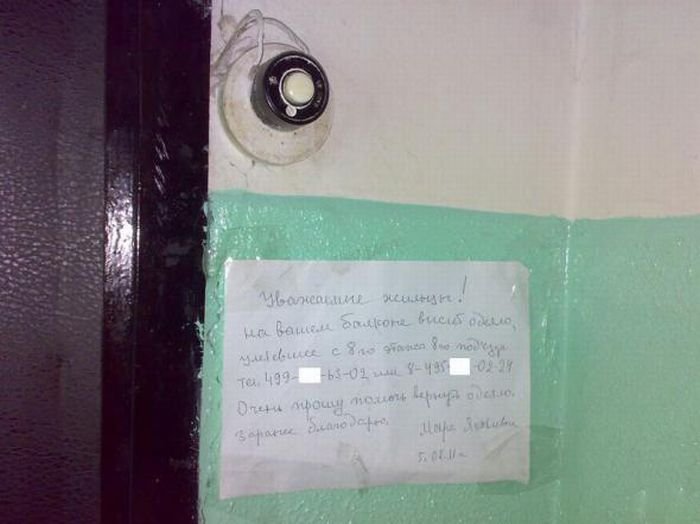 Уважаемые жильцы!
на вашем балконе висит одеяло,
улетевшее с 8-го этажа 8-го подъезда
тел. 499- -63-02 или 8-495- -02-28
Очень прошу помочь вернуть одеяло.
Заранее благодарю.
Марк
5.08.11г